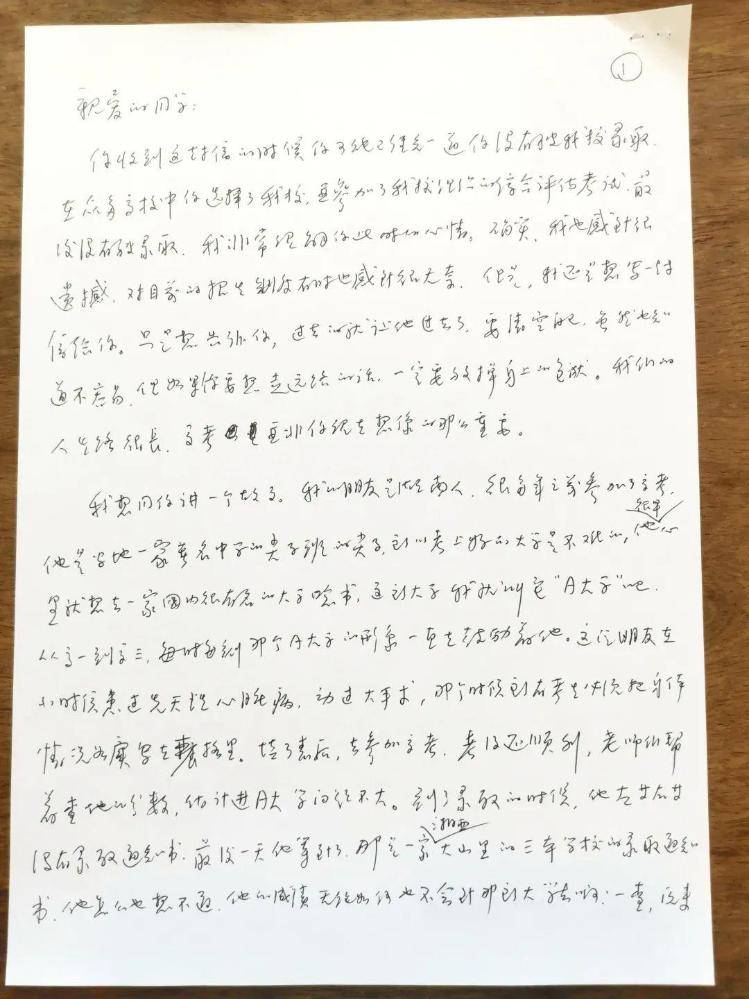 ①
亲爱的同学：
你收到这封信的时候你可能已经知道你没有被我校录取.
在众多高校中你选择了我校，并参加了我校组织的综合评估考试，最
后没有被录取，我非常理解你此时的心情。确实，我也感到很
遗憾，对目前的招生制度有时也感到很无奈。但是，我还是想写一封
信给你。只是想告诉你，过去的就让他过去了，要清空自己，虽然也知
道不容易，但如果你要想走远路的话，一定要放掉身上的包袱。我们的
人生路很长，高考并非你现在想像的那么重要。
我想同你讲一个故事。我的朋友是湖南人，很多年之前参加了高考，
他是当地一家著名中学的尖子班的尖子，所以考上好的大学是不难的，他很早心
里就想去一家国内很有名的大学念书，这所大学我就叫它“A大学”吧.
从高一到高三，每时每刻那个A大学的形象一直在鼓励着他。这位朋友在
小时候患过先天性心脏病，动过大手术，那个时候所有考生必须把身体
情况如实写在表格里。填了表后，去参加高考，考得还顺利，老师们帮
着查他的分数，估计进A大学问题不大。到了录取的时候，他左等右等
没有录取通知书，最后一天他等到了，那是一家湘西大山里的三本学校的录取通知
书，他怎么也想不通，他的成绩无论如何也不会到那所大学去啊！一查，后来